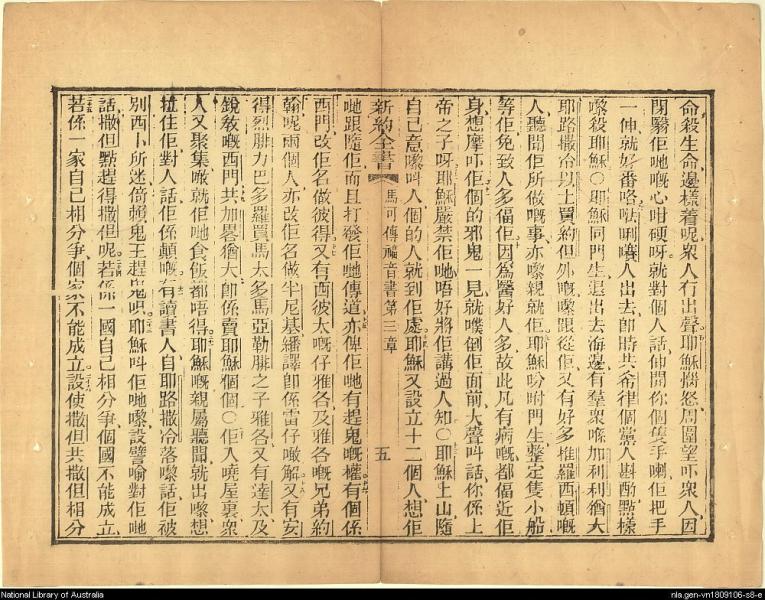 命殺生命邊樣着呢衆人冇出聲耶穌惱怒周圍望吓衆人因
閉翳佢哋嘅心咁硬呀就對個人話伸開你個隻手喇佢把手
一伸就好番咯𠵇唎㘔人出去卽時共希律個黨人斟酌點樣
嚟殺耶穌○耶穌同門生退出去海邊有羣衆喺加利利猶大
耶路撒冷以土買約但外嘅嚟跟從佢又有好多推羅西頓嘅
人聽聞佢所做嘅事亦嚟親就佢耶穌吩咐門生整定隻小船
等佢免致人多偪佢因爲醫好人多故此凡有病嘅都偪近佢
身想摩吓佢個的邪鬼一見就噗倒佢面前大聲呌話你係上
帝之子呀耶穌嚴禁佢哋唔好將佢講過人知○耶穌上山隨
自己意嚟呌人個的人就到佢處耶穌又設立十二個人想佢
新約全書 馬可傳福音書第三章 五
哋跟隨佢而且打發佢哋傳道亦俾佢哋有趕鬼嘅權有個係
西門改佢名做彼得又有西彼太嘅仔雅各及雅各嘅兄弟約
翰呢兩個人亦改佢名做半尼基繙譯卽係雷仔噉解又有安
得烈腓力巴多羅買馬太多馬亞勒腓之子雅各又有達太及
銳敎嘅西門共加畧猶大卽係賣耶穌個個○佢入嘵屋裏衆
人又聚集噉就佢哋食飯都唔得耶穌嘅親屬聽聞就出嚟想
拉住佢對人話佢係顛嘅有讀書人自耶路撒冷落嚟話佢被
別西卜所迷倚賴鬼王趕鬼呮耶穌呌佢哋嚟設譬喻對佢哋
話撒但點趕得撒但呢若係一國自己相分爭個國不能成立
若係一家自己相分爭個家不能成立設使撒但共撒但相分
National Library of Australia
nla.gen-vn1809106-s8-e